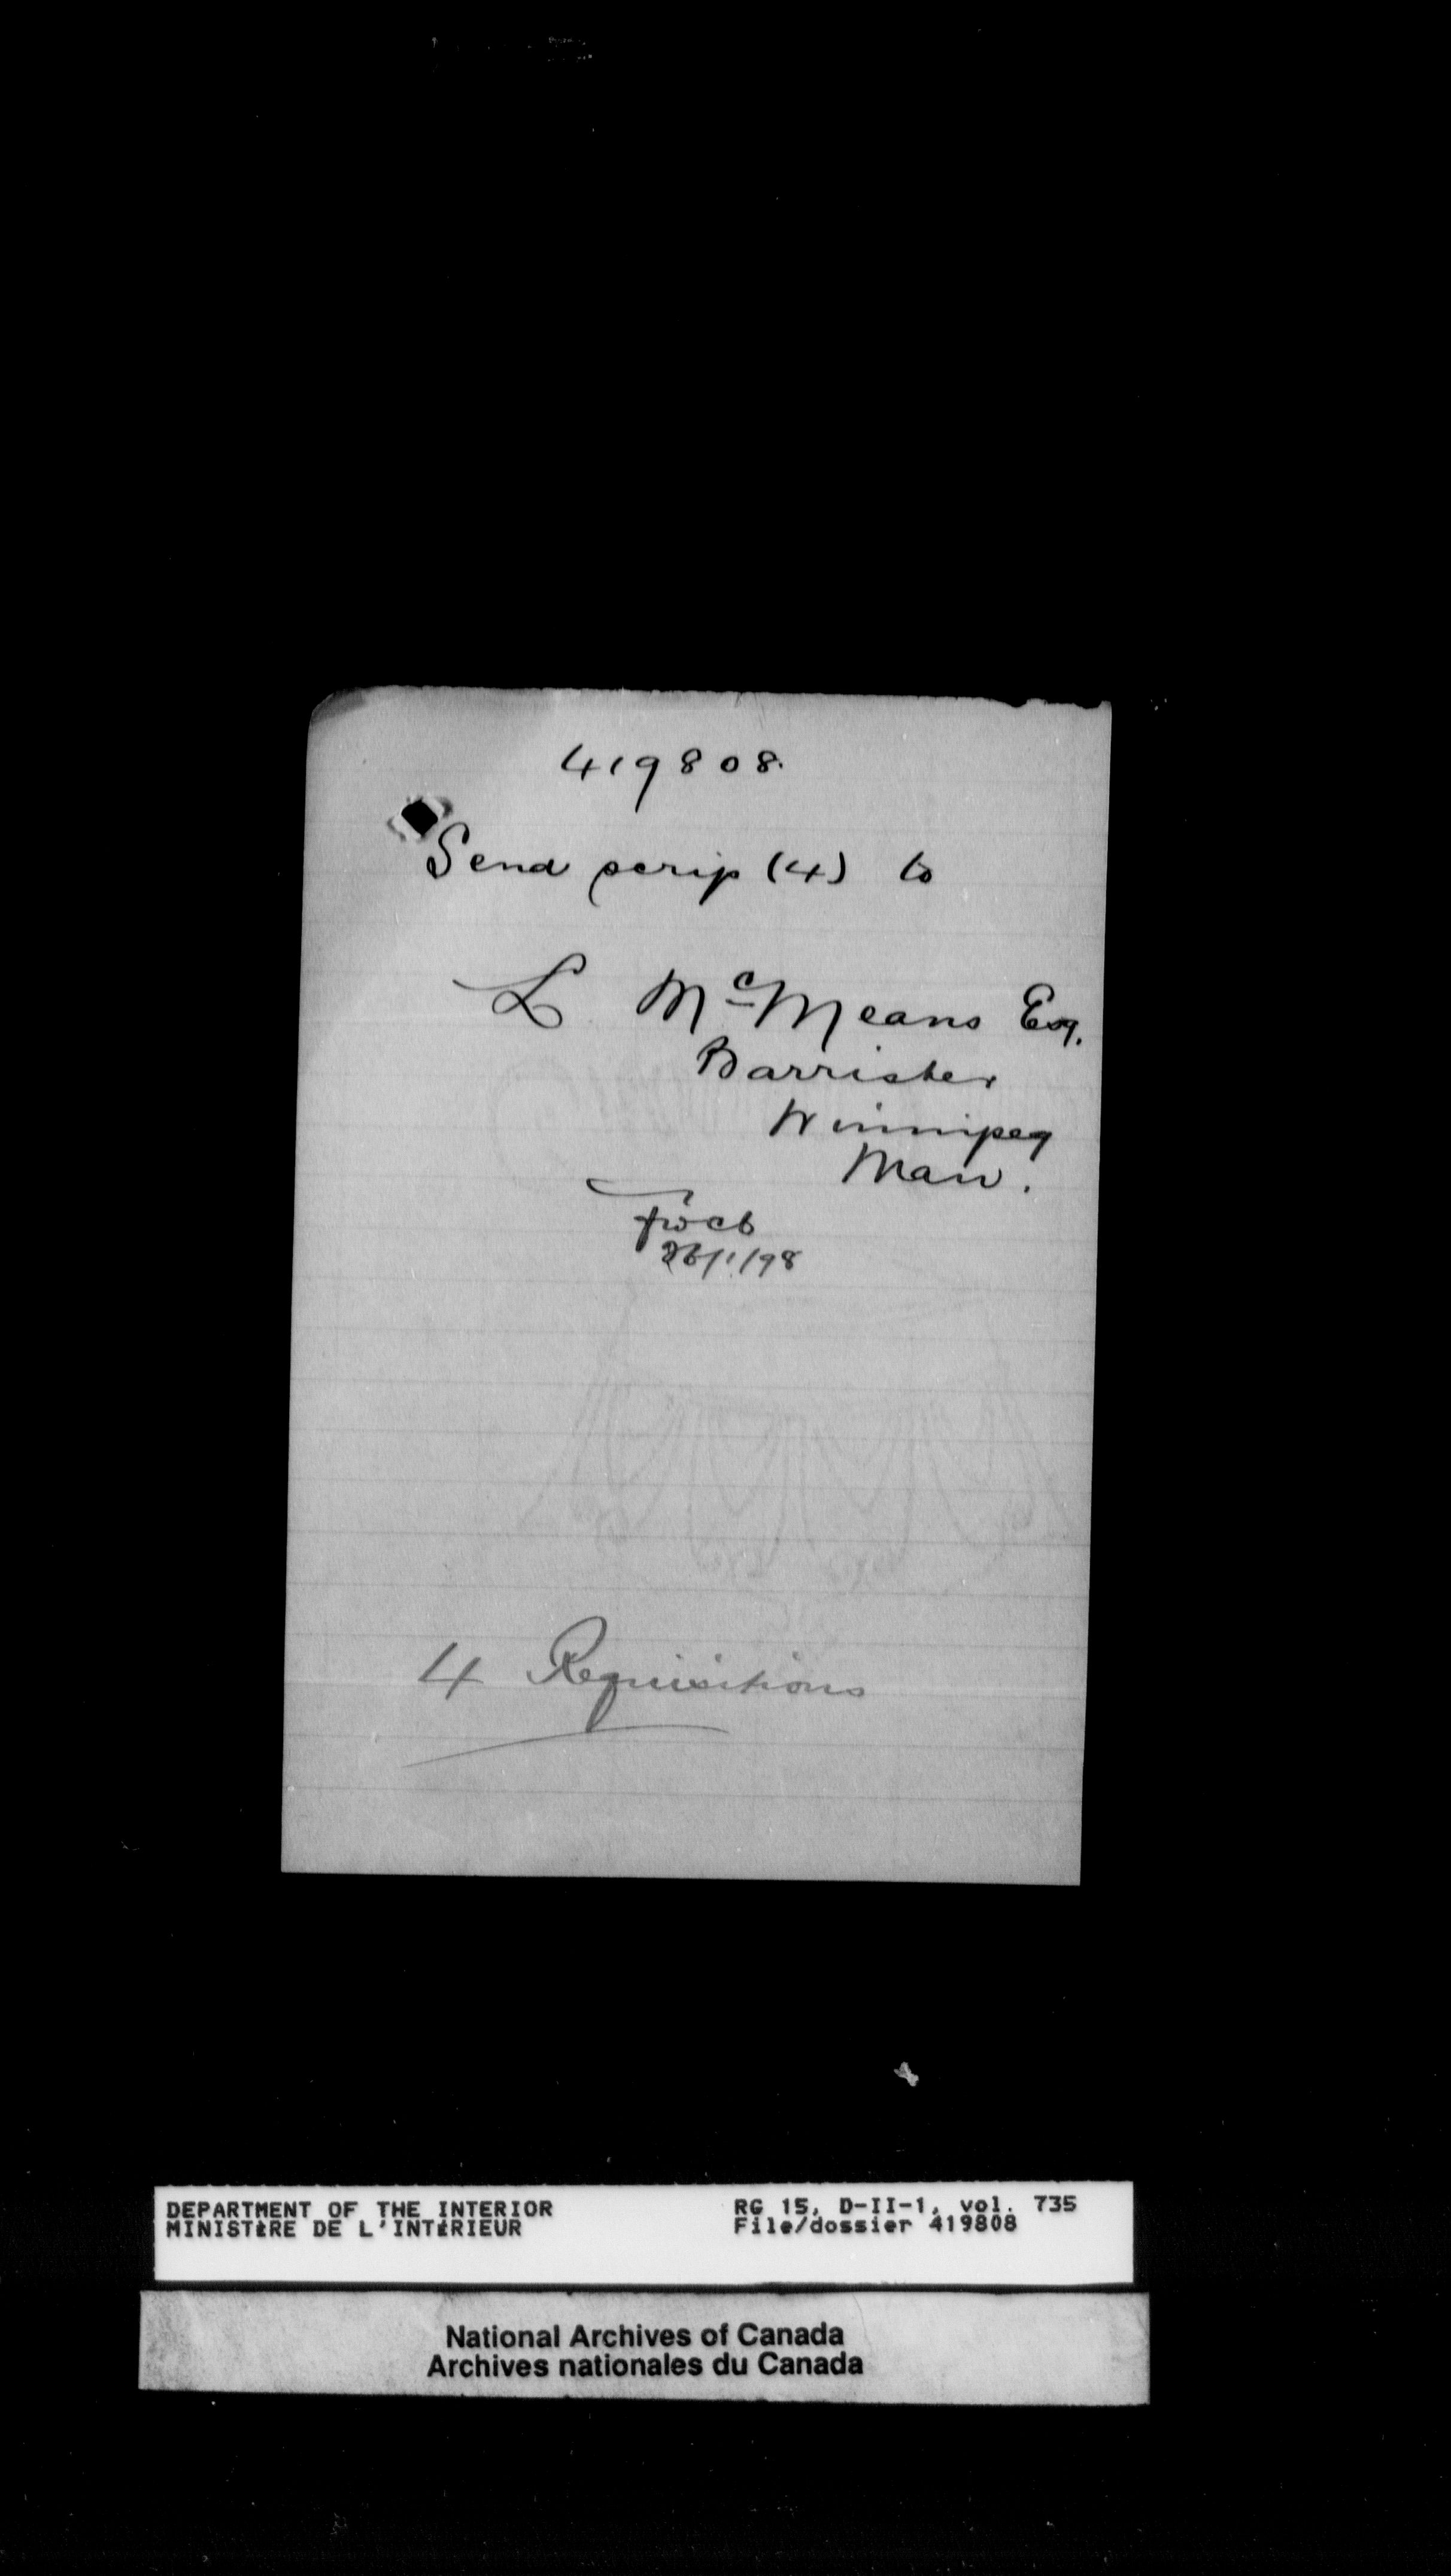 419808.
Send scrip (4) to
L McMeans Esq.
Barrister
Winnipeg
Man.
26/1/98
4 Requisitions
DEPARTMENT OF THE INTERIOR
MINISTÈRE DE L'INTÉRIEUR
RG 15, D-II-1, vol. 735
File/dossier 419808
National Archives of Canada
Archives nationales du Canada